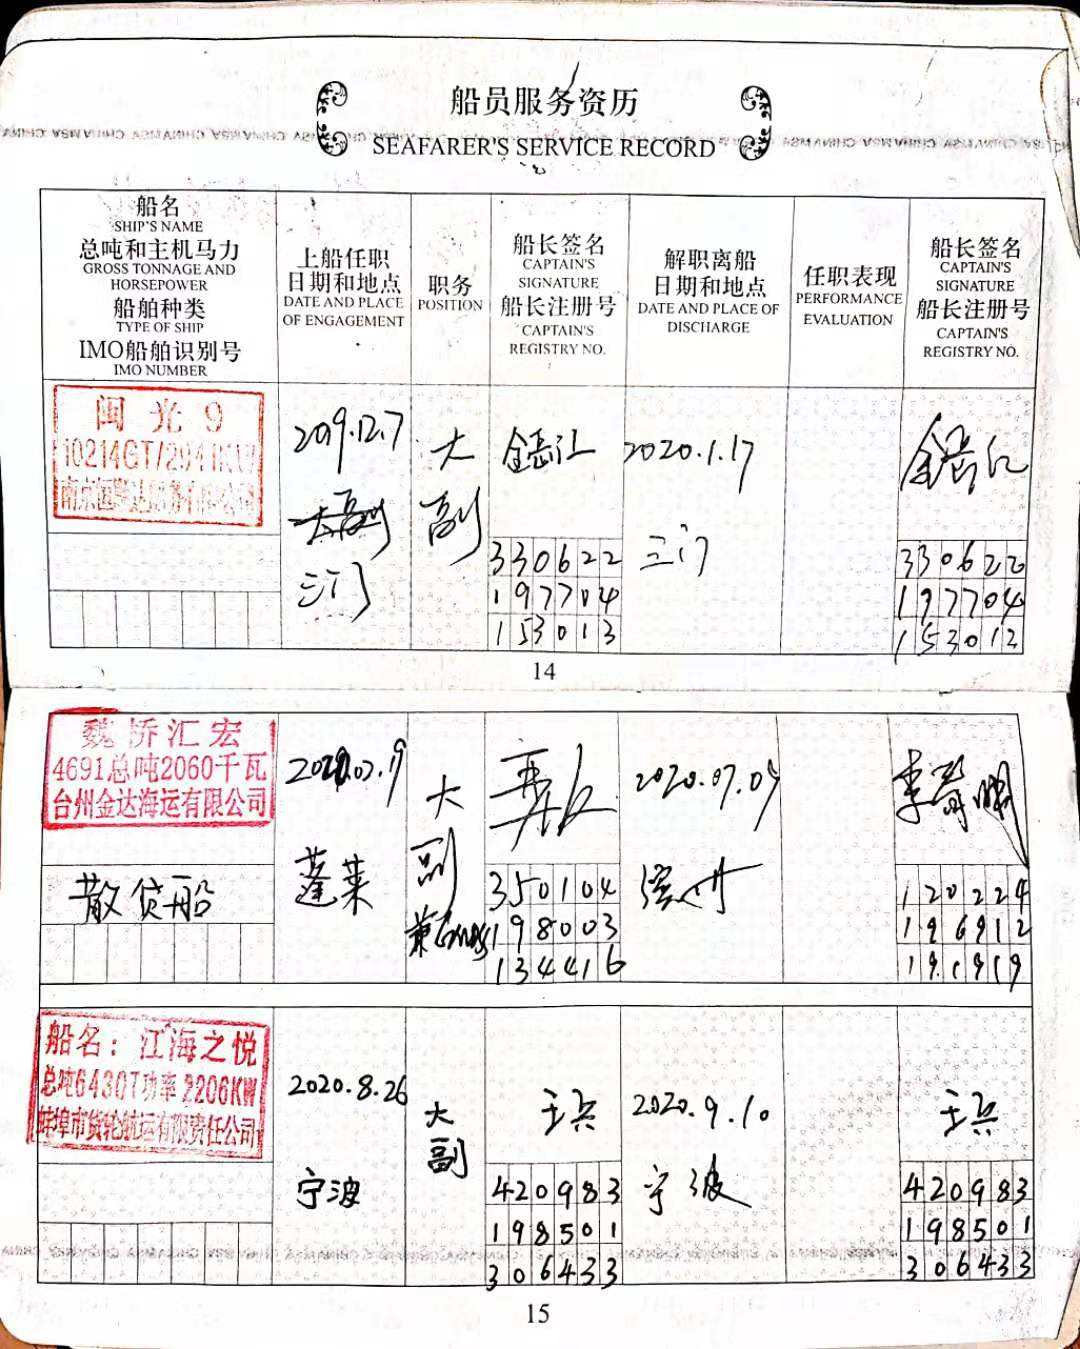 船员服务资历
SEAFARER'S SERVICE RECORD
船名
SHIP'S NAME
总吨和主机马力
GROSS TONNAGE AND
HORSEPOWER
船舶种类
TYPE OF SHIP
IMO船舶识别号
IMO NUMBER
上船任职
日期和地点
DATE AND PLACE
OF ENGAGEMENT
职务
POSITION
船长签名
CAPTAIN'S
SIGNATURE
船长注册号
CAPTAIN'S
REGISTRY NO.
解职离船
日期和地点
DATE AND PLACE OF
DISCHARGE
任职表现
PERFORMANCE
EVALUATION
船长签名
CAPTAIN'S
SIGNATURE
船长注册号
CAPTAIN'S
REGISTRY NO.
闽光9
10214GT/2941KW
2019.12.7
大副
三门
大
副
330622
197704
153013
2020.1.17
三门
330622
197704
153012
14
魏桥汇宏
4691总吨2060千瓦
台州金达海运有限公司
散货船
蓬莱
大
副
兼GMDSS
350104
198003
134416
2020.07.09
120224
196912
191919
船名：江海之悦
总吨6430T功率2206KW
蚌埠市货轮航运有限责任公司
2020.8.26
宁波
大
副
王兵
420983
198501
306433
2020.9.10
宁波
王兵
420983
198501
306433
15